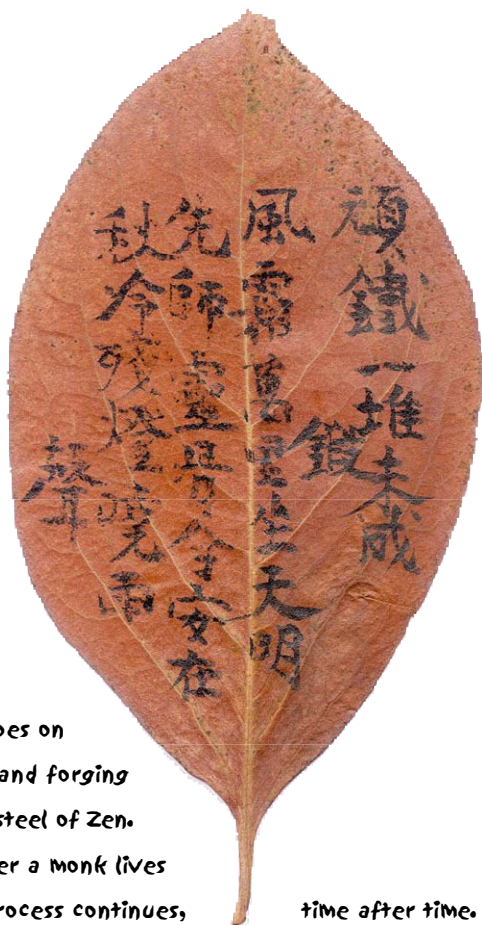 頑鐵一堆未成
鍛
風霜萬里坐天明
先師靈骨今安在
秋冷殘燈曉雨
聲
oes on
and forging
steel of Zen.
er a monk lives
rocess continues, time after time.